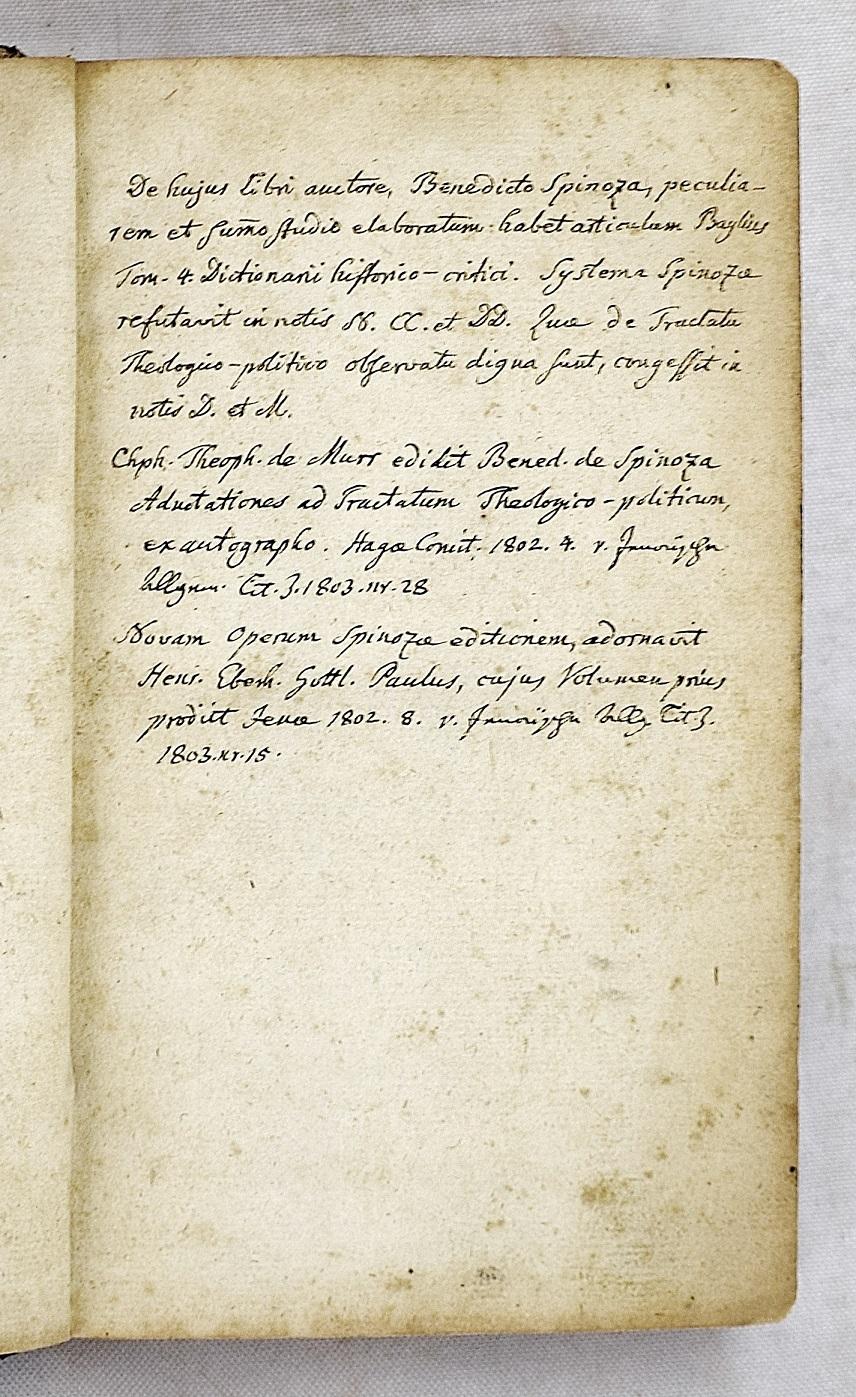 De hujus libri auctore, Benedicto Spinoza, peculia-
rem et sum̄o studio elaboratum habet articulum Baylius
Tom. 4. Dictionarii historico-critici. Systema Spinozæ
refutavit in notis N. CC. et DD. Quæ de Tractatu
Theologico-politico observatu digna sunt, congessit in
notis D. et M.
Chph. Theoph. de Murr edidit Bened. de Spinoza
Adnotationes ad Tractatum Theologico-politicum,
ex autographo. Hagæ Comit. 1802. 4. v. Jenaische
Allgem. Lit. Z. 1803. nr. 28
Novam Operum Spinozæ editionem, adornavit
Henr. Eberh. Gottl. Paulus, cujus Volumen prius
prodiit Jenæ 1802. 8. v. Jenaische Allg. Lit. Z.
1803. nr. 15.